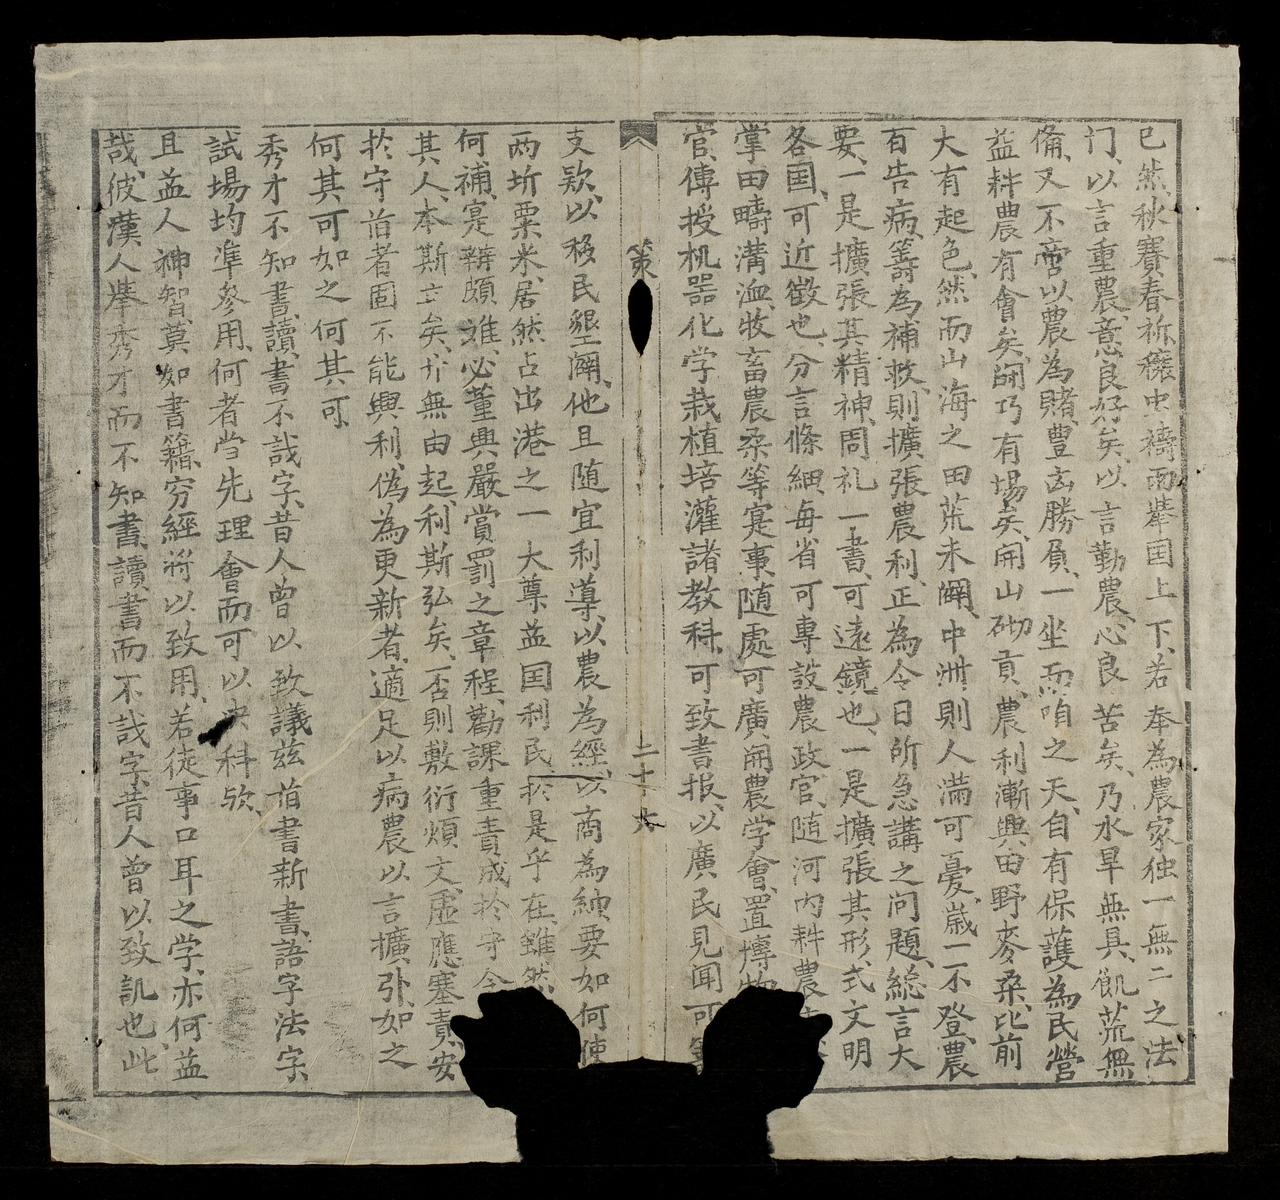 已然、秋賽春祈、穰虫禱雨、舉囯上下、若奉為農家独一無二之法
门、以言重農、意良好矣、以言勤農、心良苦矣、乃水旱無具、飢荒無
備、又不啻以農為賭、豊凶勝負、一坐而咱之天、自有保護為民營
益、耕農有會矣、開巧有場矣、開山砌貢、農利漸興、田野麥桑、比前
大有起色、然而山海之田荒未闢、中洲則人滿可憂、歲一不登、農
百告病、籌為補救、則擴張農利、正為今日所急講之问題、総言大
要、一是擴張其精神、周礼一書、可遠鏡也、一是擴張其形式、文明
各国、可近徵也、分言條細、每省可專設農政官、随河内耕農
掌田疇溝洫、牧畜農桑等寔事、随處可廣開農学會、置博物
官、傳授机器化学栽植培灌諸教科、可致書报、以廣民見聞、可
策
二十六
支欵、以移民墾闢、他且随宜利導、以農為經、以商為緯、要如何使
两圻粟米、居然占出港之一大尊、益囯利民、於是乎在、雖然
何補、寔辦頗难、必董典嚴賞罰之章程、勸課重責成於守令
其人、本斯立矣、弊無由起、利斯弘矣、否則敷衍煩文、虛應塞責、安
於守旧者固不能興利、偽為更新者、適足以病農、以言擴引、如之
何其可、如之何其可、
秀才不知書、讀書不識字、昔人曾以致議、茲旧書新書、語字法字、
試場均準参用、何者当先理會、而可以决科欤、
且益人神智、莫如書籍、穷經将以致用、若徒事口耳之学、亦何益
哉、彼漢人舉秀才而不知書、讀書而不識字、昔人曾以致訊也、此